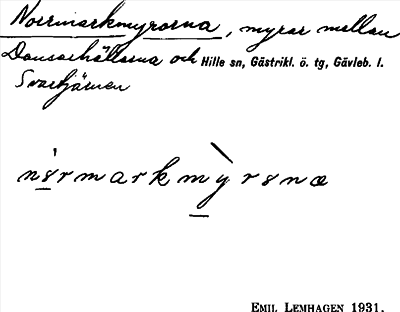 Norrmarkmyrorna, myrar mellan
Dansarhällarna och Hille sn, Gästrikl. ö. tg, Gävleb. l.
Svartjärnen
nɞrmarkmỳrsnæ
EMIL LEMHAGEN 1931.